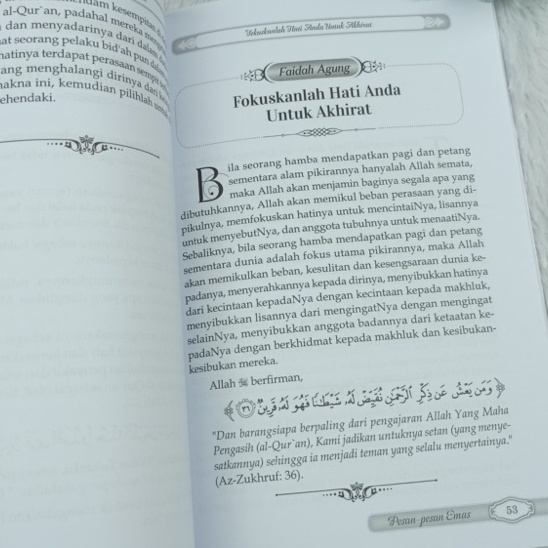 al-Qur`an, padahal mereka
dan menyadarinya dari
seorang pelaku bid'ah
hatinya terdapat perasaan sempit
yang menghalangi dirinya
makna ini, kemudian pilihlah
Fokuskanlah Hati Anda Untuk Akhirat
Faidah Agung
Fokuskanlah Hati Anda
Untuk Akhirat
Bila seorang hamba mendapatkan pagi dan petang
sementara alam pikirannya hanyalah Allah semata,
maka Allah akan menjamin baginya segala apa yang
dibutuhkannya, Allah akan memikul beban perasaan yang di-
pikulnya, memfokuskan hatinya untuk mencintaiNya, lisannya
untuk menyebutNya, dan anggota tubuhnya untuk menaatiNya.
Sebaliknya, bila seorang hamba mendapatkan pagi dan petang
sementara dunia adalah fokus utama pikirannya, maka Allah
akan memikulkan beban, kesulitan dan kesengsaraan dunia ke-
padanya, menyerahkannya kepada dirinya, menyibukkan hatinya
dari kecintaan kepadaNya dengan kecintaan kepada makhluk,
menyibukkan lisannya dari mengingatNya dengan mengingat
selainNya, menyibukkan anggota badannya dari ketaatan ke-
padaNya dengan berkhidmat kepada makhluk dan kesibukan-
kesibukan mereka.
Allah ﷻ berfirman,
﴿ وَمَن يَعْشُ عَن ذِكْرِ ٱلرَّحْمَٰنِ نُقَيِّضْ لَهُۥ شَيْطَٰنًا فَهُوَ لَهُۥ قَرِينٌ ٣٦ ﴾
"Dan barangsiapa berpaling dari pengajaran Allah Yang Maha
Pengasih (al-Qur`an), Kami jadikan untuknya setan (yang menye-
satkannya) sehingga ia menjadi teman yang selalu menyertainya."
(Az-Zukhruf: 36).
Pesan-pesan Emas 53